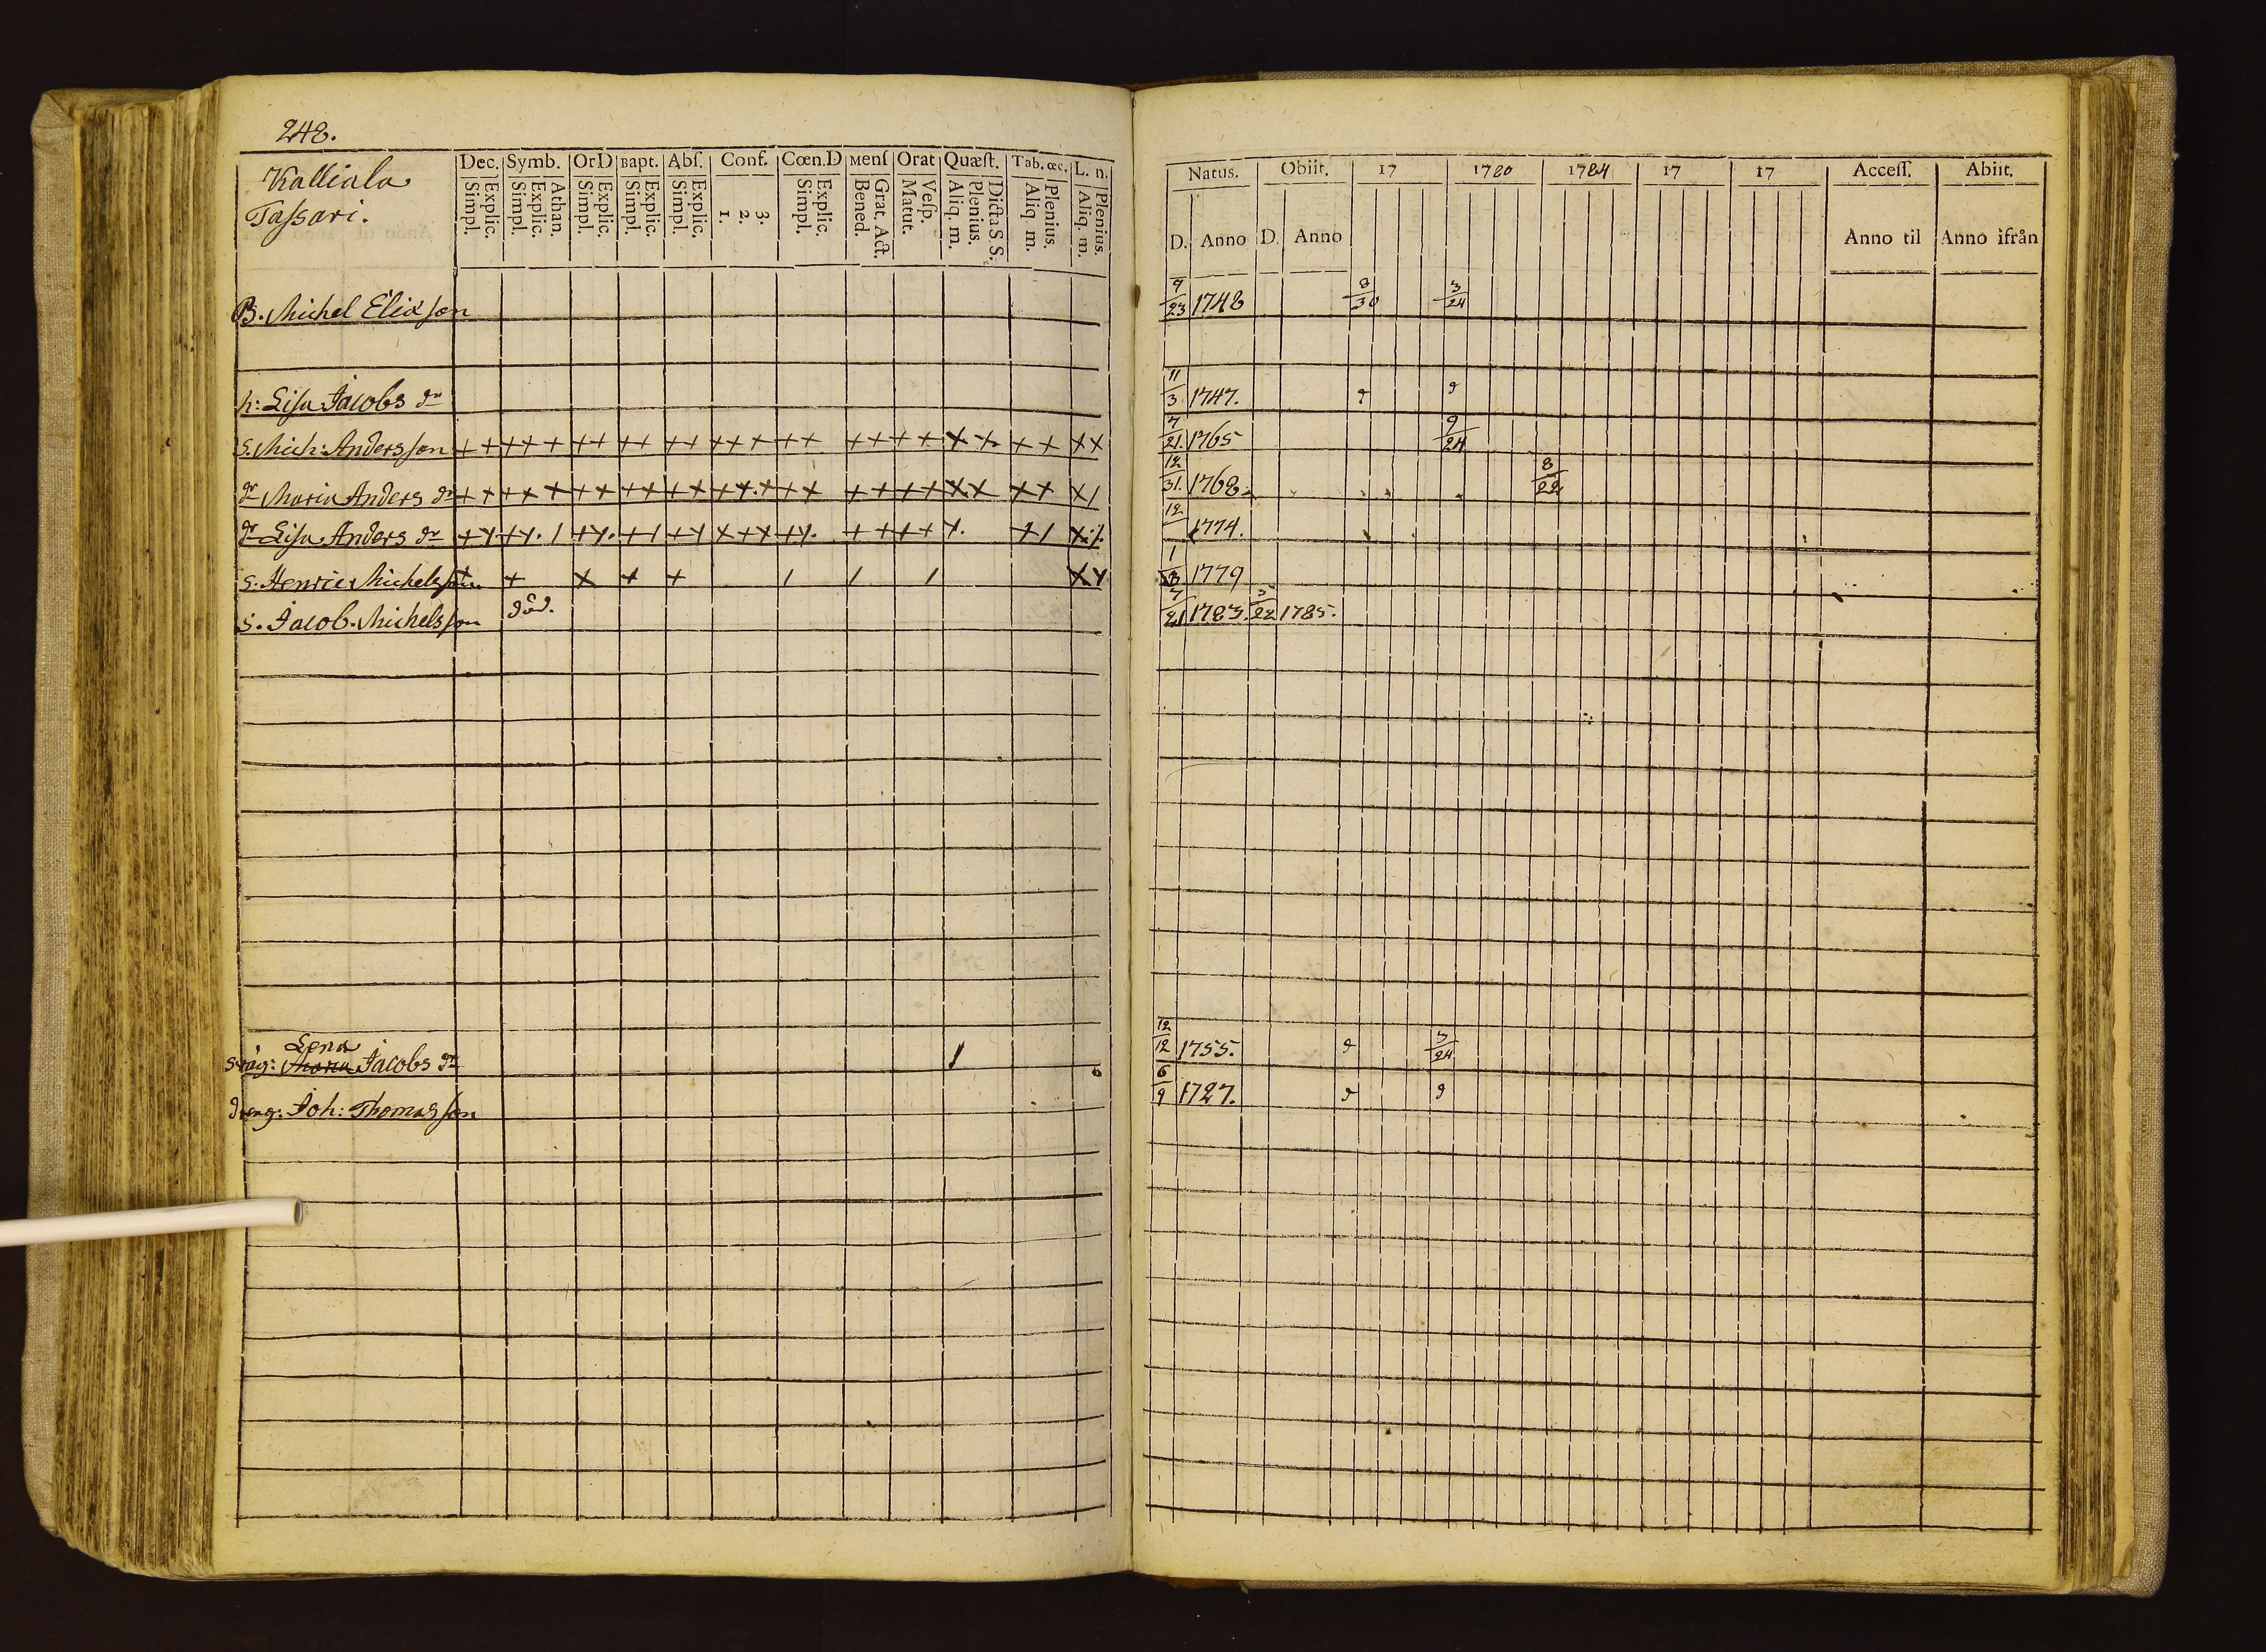 248.
Kalliala
Tassari.
Dec. Symb. Or D Bapt. Abs. Conf. Cœn.D Mens Orat Quæst. Tab. œc. L. n.
Simpl. Explic. Simpl. Explic. Athan. Simpl. Explic. Simpl. Explic. Simpl. Explic. 1. 2. 3. Simpl. Explic. Bened. Grat. Act. Matut. Vesp. Aliq. m. Plenius. Dicta S S. Aliq. m. Plenius. Aliq. m. Plenius.
B. Michel Elixson
h: Lisa Jacobs dr
S. Mich: Andersson ++ +++ ++ ++ ++ +++ ++ ++ ++ ++ ++ ++
dr Maria Anders dr ++ +++ ++ ++ ++ +++ ++ ++ ++ ++ ++ +/
dr Lisa Anders dr
s. Henric Michelsson
s. Jacob. Michelsson död.
Lena
Jacobs dr
dreng: Joh: Thomasson
Natus. Obiit. 17 1780 1784 17 17 Access. Abiit.
D. Anno D. Anno Anno til Anno ifrån
9/23 1748 8/30 3/24
11/3 1747. d d
7/21. 1765 9/24
12/31. 1768 8/22
12 1774.
1 1779
7/21 1783. 3/22 1785.
12/12 1755. d 3/24
6/9 1727. d d